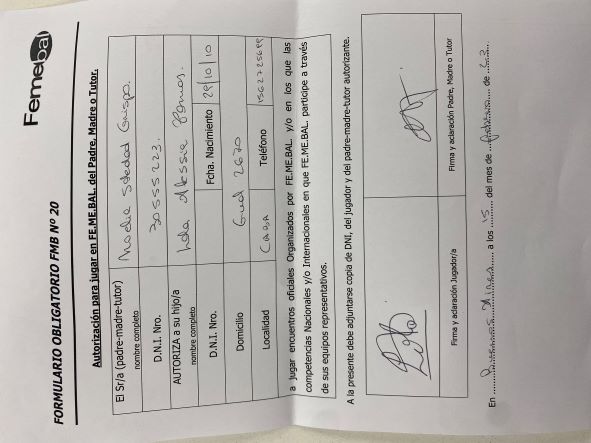 Femebal
FORMULARIO OBLIGATORIO FMB Nº 20
Autorización para jugar en FE.ME.BAL. del Padre, Madre o Tutor.
El Sr/a (padre-madre-tutor)
nombre completo
Soledad
D.N.I. Nro.
30555223.
AUTORIZA a su hijo/a
nombre completo
Lola Alessia Ramos.
D.N.I. Nro.
Fcha. Nacimiento
29/10/10
Domicilio
2670
Localidad
CABA
Teléfono
a jugar encuentros oficiales Organizados por FE.ME.BAL y/o en los que las
competencias Nacionales y/o Internacionales en que FE.ME.BAL. participe a través
de sus equipos representativos.
A la presente debe adjuntarse copia de DNI, del jugador y del padre-madre-tutor autorizante.
Firma y aclaración Jugador/a
Firma y aclaración Padre, Madre o Tutor
En Buenos Aires a los 15 del mes de de